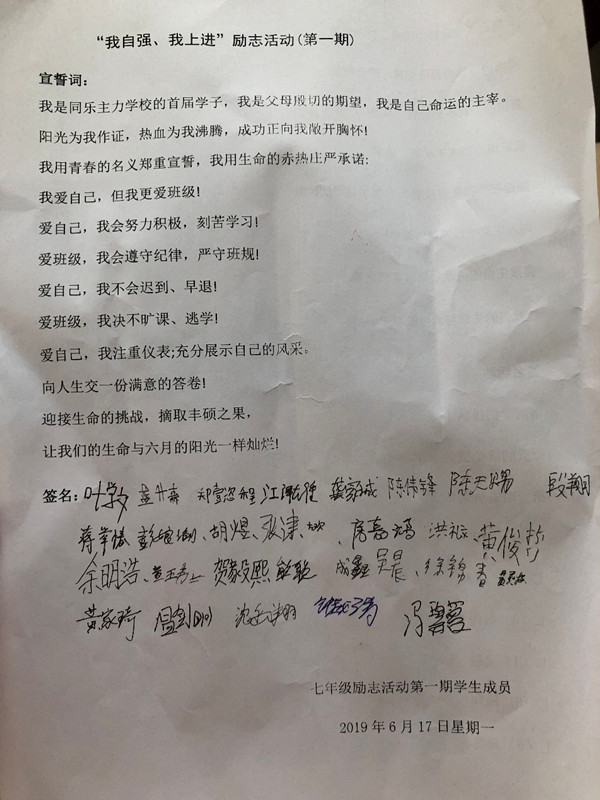 “我自强、我上进”励志活动(第一期)
宣誓词:
我是同乐主力学校的首届学子，我是父母殷切的期望，我是自己命运的主宰。
阳光为我作证，热血为我沸腾，成功正向我敞开胸怀!
我用青春的名义郑重宣誓，我用生命的赤热庄严承诺:
我爱自己，但我更爱班级!
爱自己，我会努力积极，刻苦学习!
爱班级，我会遵守纪律，严守班规!
爱自己，我不会迟到、早退!
爱班级，我决不旷课、逃学!
爱自己，我注重仪表;充分展示自己的风采。
向人生交一份满意的答卷!
迎接生命的挑战，摘取丰硕之果，
让我们的生命与六月的阳光一样灿烂!
签名: 陈伟锋
胡煜、 黄俊哲
余明浩、 贺毅熙
黄家琦
七年级励志活动第一期学生成员
2019 年 6 月 17 日星期一